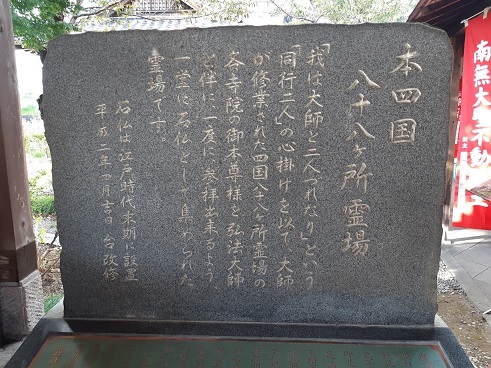 本四国
八十八ヶ所霊場
「我は大師と二人づれなり」という
「同行二人」の心掛けを以て、大師
が修業された四国八十八ヶ所霊場の
各寺院の御本尊様と弘法大師
と伴に一度に参拝出来るよう、
一堂に石仏として集められた
霊場です。
石仏は江戸時代末期に設置
平成二年四月吉日 台改修
南無大聖不動